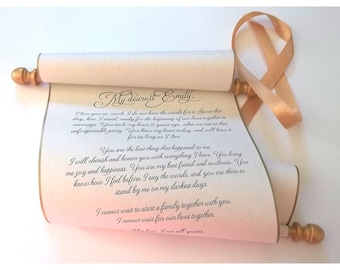 My dearest Emily,
I love you so much, I do not have the words for it. Yet on this
day, here I stand, ready for the beginning of our lives together in
marriage. You took my heart years ago, when we met on that
unforgettable journey. You have my heart today, and will have it
for as long as I live.
You are the best thing that happened to me.
I will cherish and honor you with everything I have. You bring
me joy and happiness. You are my best friend and soulmate. You
know how I feel before I say the words, and you are there to
stand by me on my darkest days.
I cannot wait to start a family together with you.
I cannot wait for our lives together.
I am all yours.